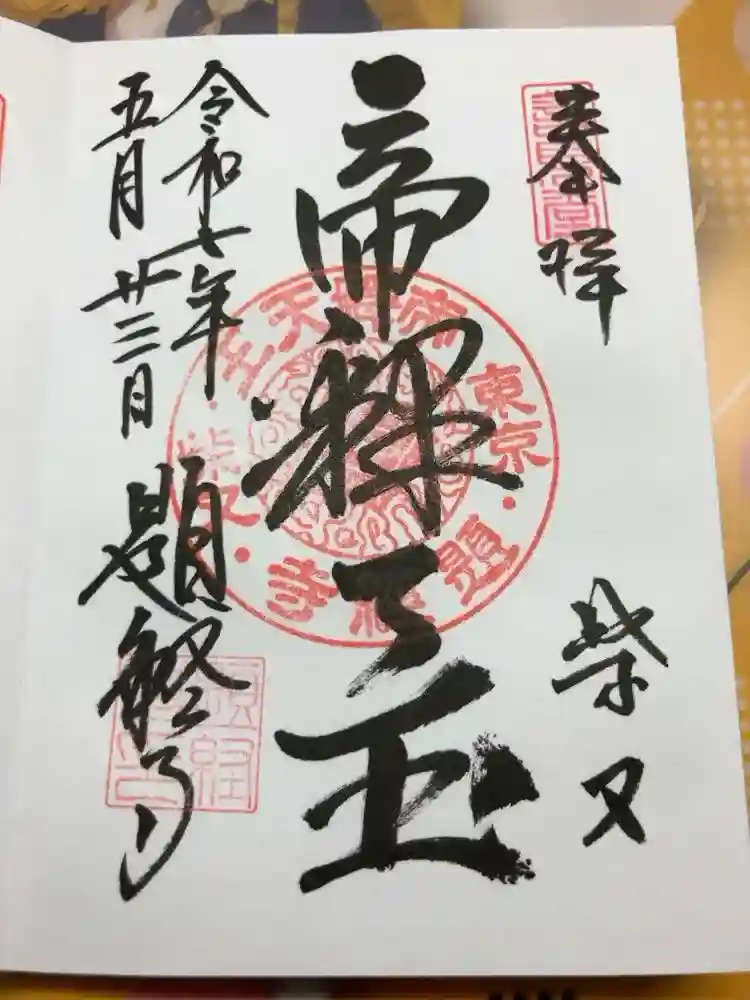 奉拝
柴又
帝釈天王
令和七年
五月廿二日
題経寺
東京
柴又
帝釋天王
題経寺